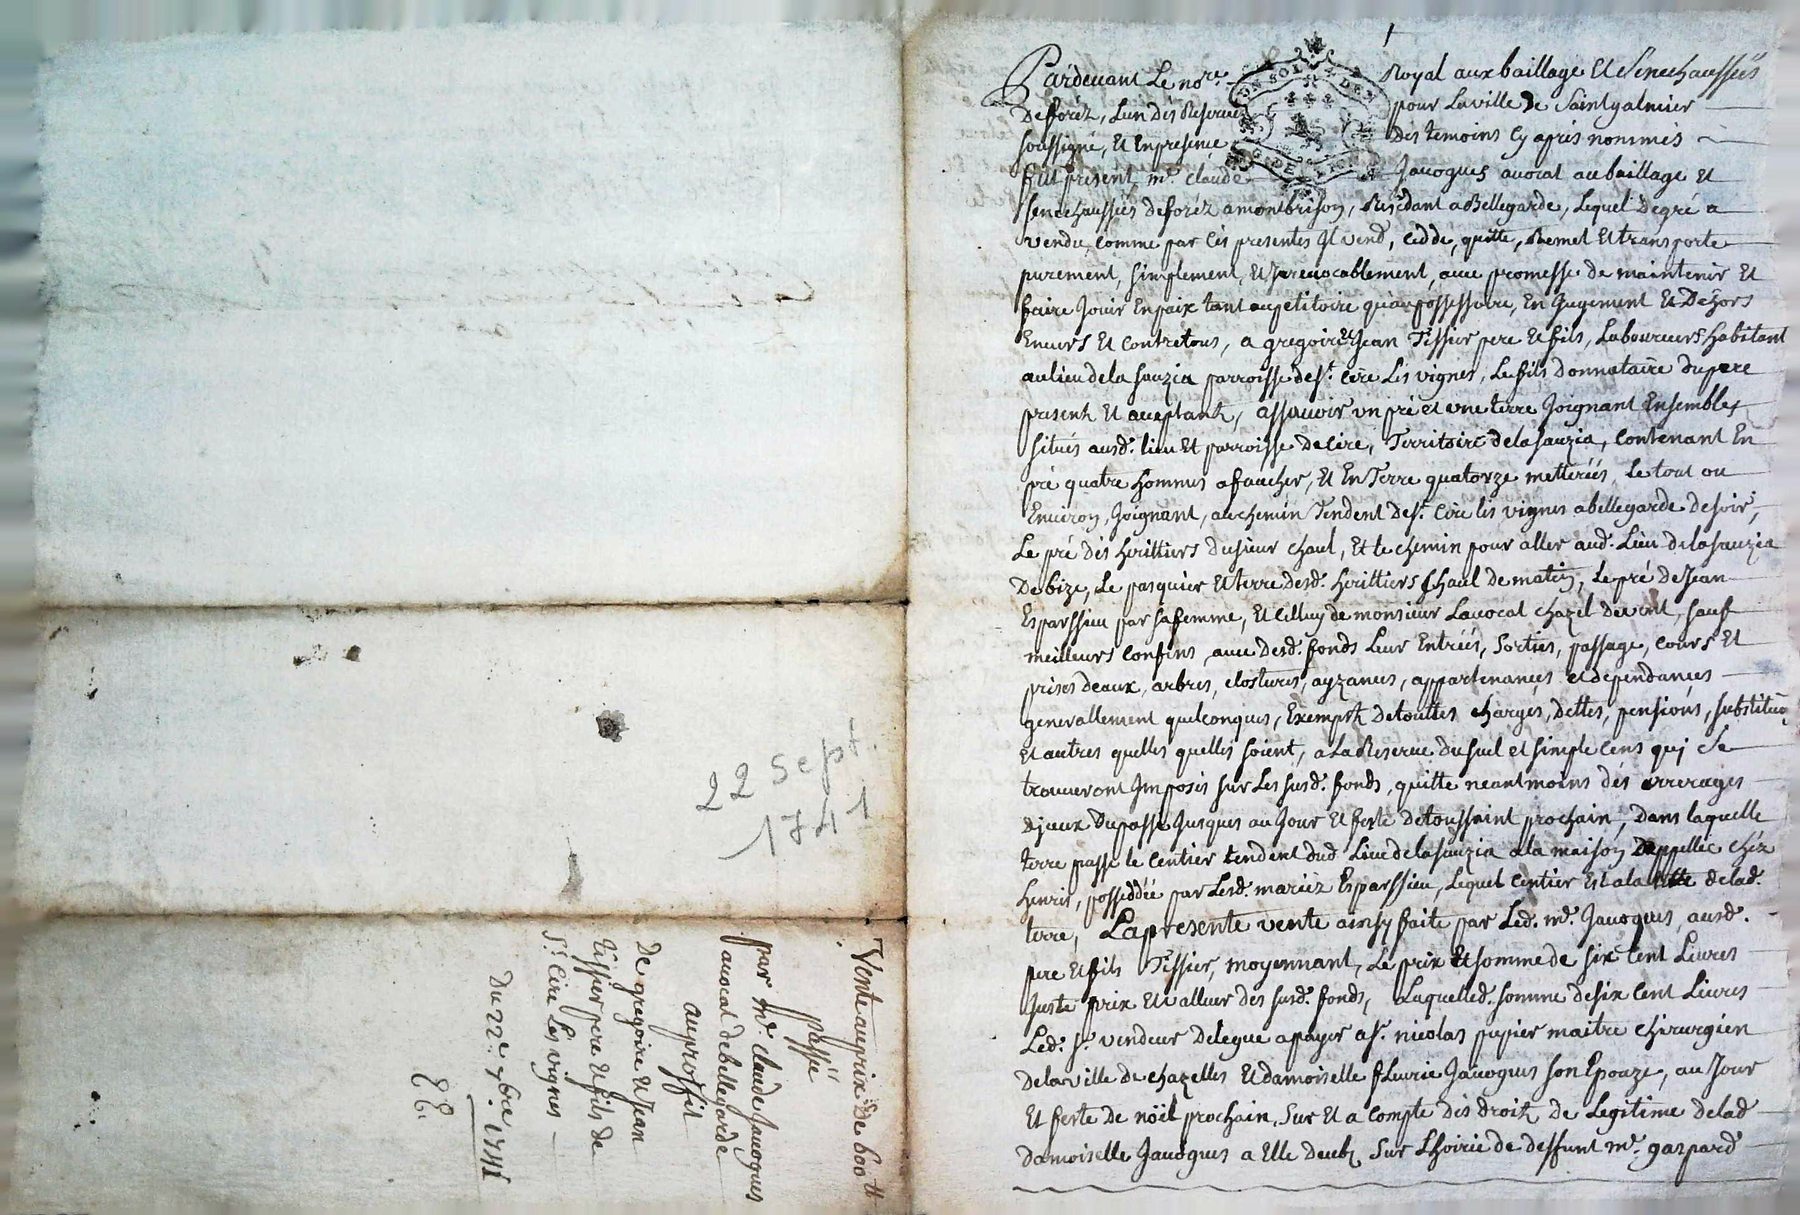 22 Sept.
1741
Vente au prix de 600 ₶
passée
par mᵉ. claude Jacoques
avocat de bellegarde
auproffit
De gregoire et Jean
tissier pere et fils de
Sᵗ. Cire Les vignes
Du 22ᵉ. 7bre 1741
Pardevant Le noʳᵉ Royal aux baillage et Senechaussées
de foréz, L'un dés Reservés pour La ville de Saint galmier
soussigné, et En presence des temoins cy aprés nommés
fut present mᵉ. claude Jacoques avocat au baillage et
senechaussées de foréz a montbrison, Residant a Bellegarde, Lequel de gré a
vendu, comme par cés presentes Il vend, cedde, quitte, Remet et transporte
purement, simplement, et Irrevocablement, avec promesse de maintenir et
faire Jouir En paix tant au petitoire qu'au possessoire, En Jugement et Dehors
Envers et contre tous, a gregoire et Jean Tissier pere et fils, Laboureurs habitant
au lieu de la sauzia parroisse de sᵗ. cire Les vignes, Le fils donnataire du pere
present et acceptant, assavoir un pré et une terre Joignant Ensembles
situés ausd. lieu et parroisse de Cire, Territoire de la sauzia, contenant En
pré quatre hommes a faucher, et En Terre quatorze metterées, Le tout ou
Environ, Joignant, au chemin Tendent de sᵗ. cire les vignes a bellegarde de soir,
Le pré dés heritiers du sieur chaul, et le chemin pour aller aud. Lieu de la sauzia
De bize, Le pasquier et terre desd. heritiers chaul de matin, Le pré de Jean
Esparssieu par sa femme, et celluy de monsieur Lavocat chazel de vent, sauf
meilleurs confins avec desd. fonds Leur Entrées, sorties, passage, cours et
prises deaux, arbres, clostures, ayzances, appartenances et dependances
generallement quelconques, Exempt de touttes charges, dettes, pensions, substituõ
et autres quelles quelles soient, a La Reserve du seul et simple cens quj se
trouveront Imposés sur Les susd. fonds, quitte neantmoins dés arrerages
djceux du passé Jusques au Jour et feste de toussaint prochain, Dans laquelle
terre passe le centier tendent dud. Lieu de la sauzia a la maison appellée chéz
Henris, posseddée par Lesd. mariéz Esparssieu, Lequel centier Est a la delad.
terre, La presente vente ainsy faite par Led. mᵉ. Jacoques, ausd.
pere et fils Tissier, moyennant, Le prix et somme de six cent Livres
Juste prix et valleur des susd. fonds, Laquelled. somme de six cent Livres
Led. sʳ. vendeur delegue a payer a sʳ. nicolas pupier maitre chirurgien
de la ville de chazelles et damoiselle fleurie Jacoques son Epouze, au Jour
et feste de noël prochain, sur et a compte dés droitz de Legitime de lad.
damoiselle Jacoques a Elle deubz sur Lhoirie de deffunt mᵉ. gaspard